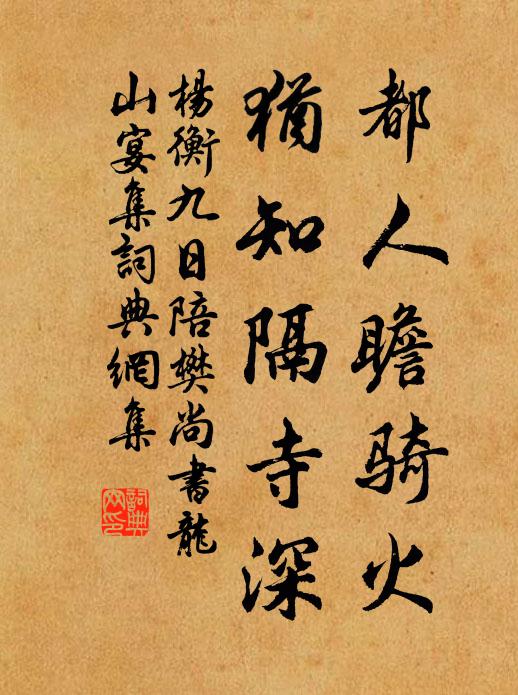 都人瞻骑火
犹知隔寺深
楊衡九日陪樊尚書龍
山宴集詞典網集
詞典网印